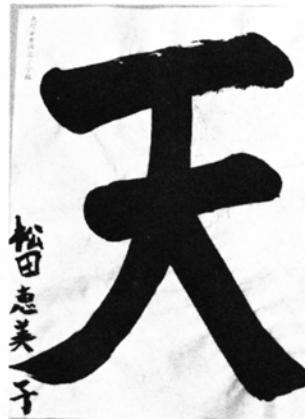 天
松田恵美子